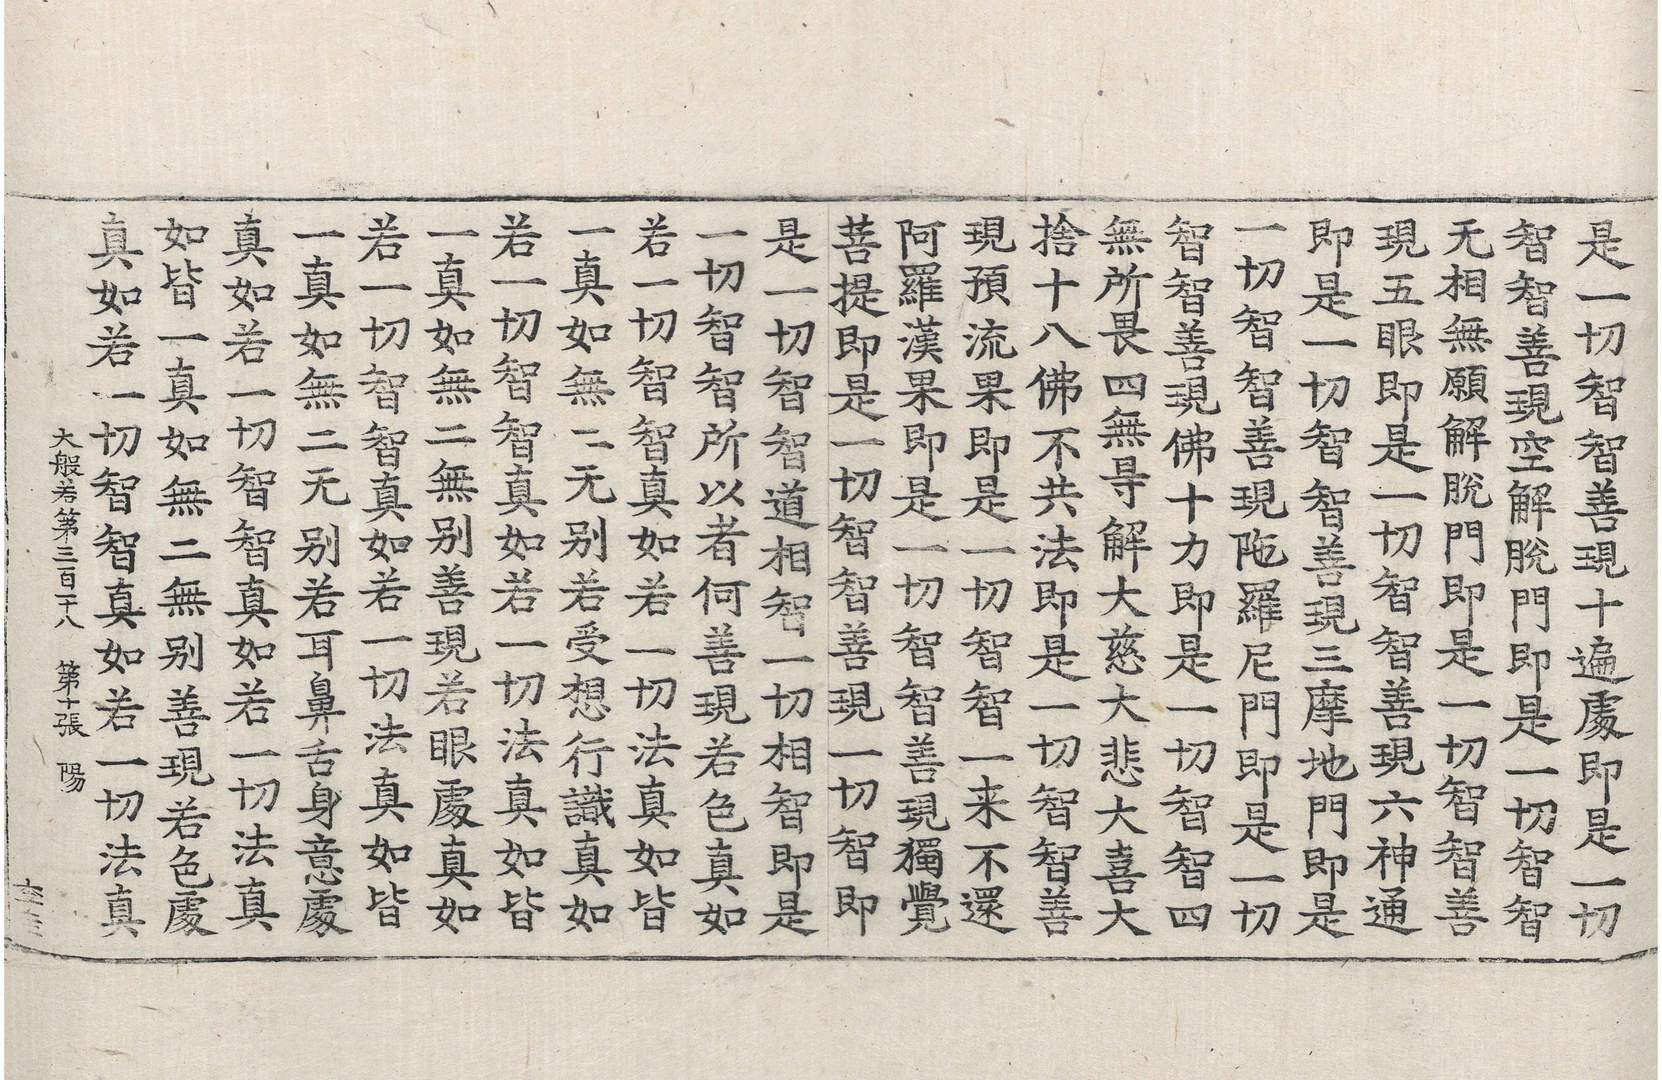 是一切智智善現十遍處即是一切
智智善現空解脫門即是一切智智
无相無願解脫門即是一切智智善
現五眼即是一切智智善現六神通
即是一切智智善現三摩地門即是
一切智智善現陁羅尼門即是一切
智智善現佛十力即是一切智智四
無所畏四無㝵解大慈大悲大喜大
捨十八佛不共法即是一切智智善
現預流果即是一切智智一来不還
阿羅漢果即是一切智智善現獨覺
菩提即是一切智智善現一切智即
是一切智智道相智一切相智即是
一切智智所以者何善現若色真如
若一切智智真如若一切法真如皆
一真如無二无別若受想行識真如
若一切智智真如若一切法真如皆
一真如無二無別善現若眼處真如
若一切智智真如若一切法真如皆
一真如無二无別若耳鼻舌身意處
真如若一切智智真如若一切法真
如皆一真如無二無別善現若色處
真如若一切智智真如若一切法真
大般若第三百二十八 第十張 陽